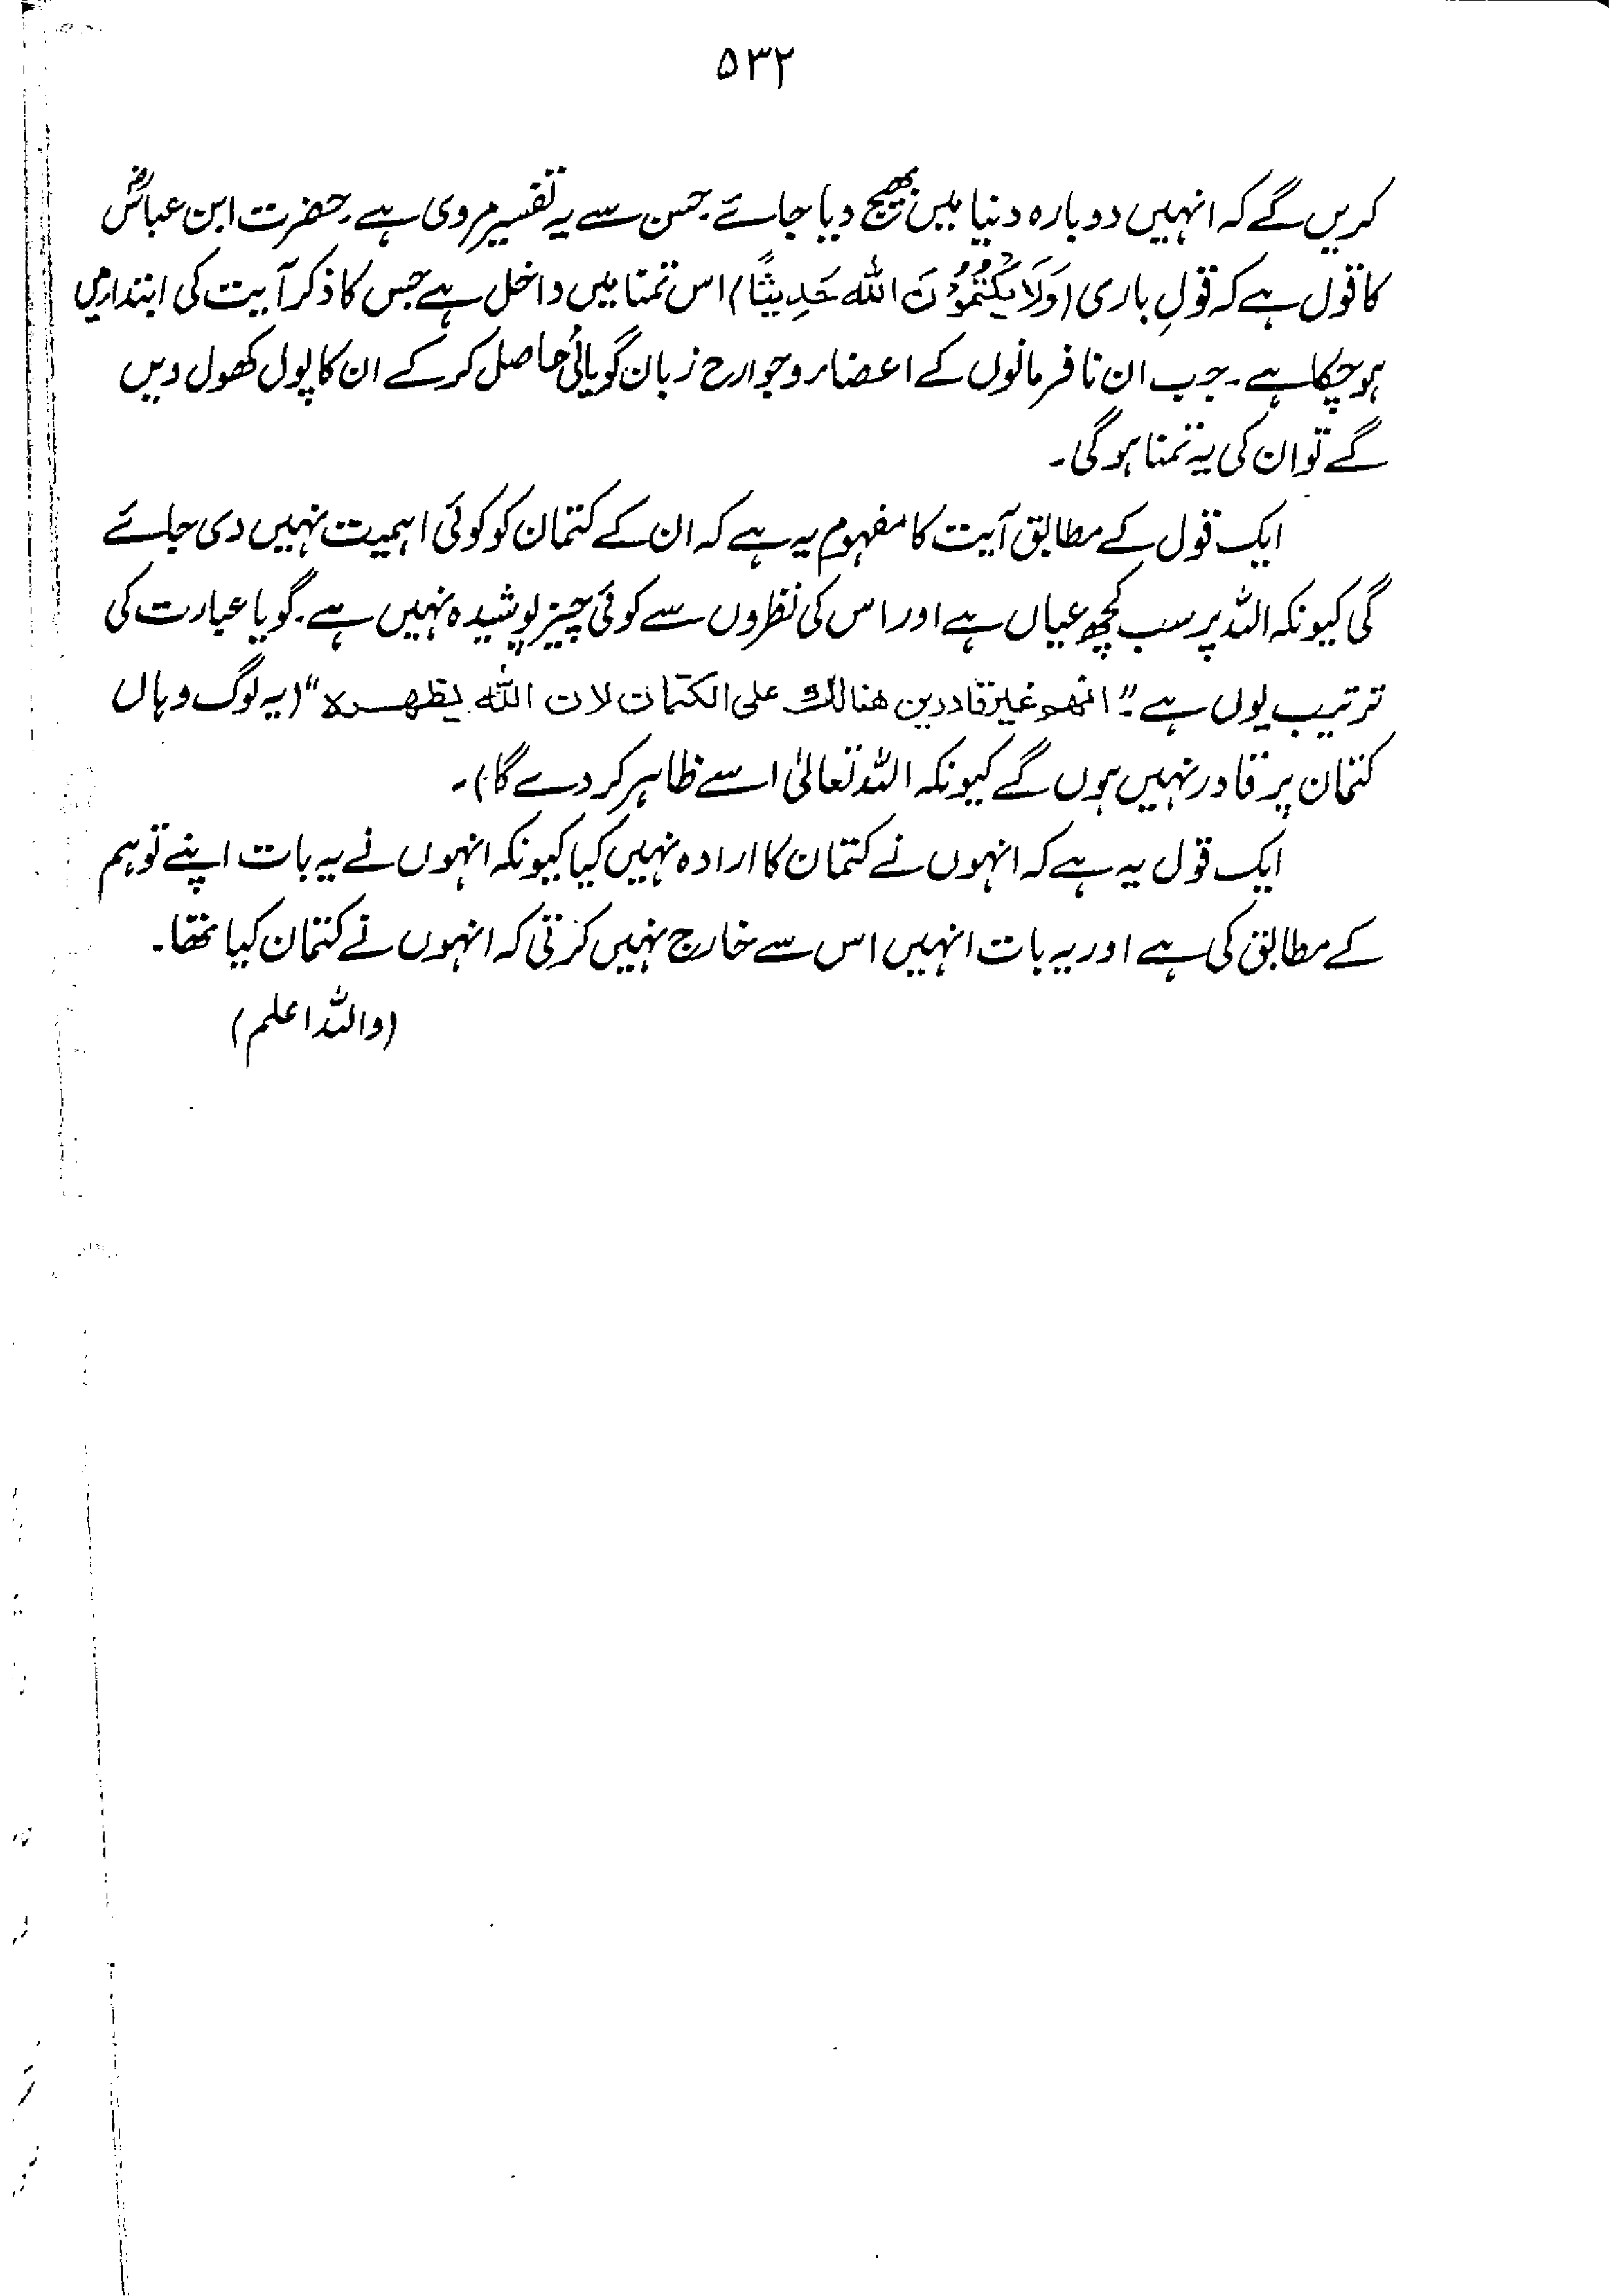 ۵۳۲
کریں گے کہ انہیں دوبارہ دنیا میں بھیج دیا جائے۔ حسن سے یہ تفسیر مروی ہے۔ حضرت ابن عباسؓ
کا قول ہے کہ قولِ باری (وَلَا یَکْتُمُوْنَ اللّٰہَ حَدِیثًا) اس تمنا میں داخل ہے جس کا ذکر آیت کی ابتداء میں
ہو چکا ہے۔ جب ان نافرمانوں کے اعضاء و جوارح زبان گویائی حاصل کر کے ان کا پول کھول دیں
گے تو ان کی یہ تمنا ہو گی۔
ایک قول کے مطابق آیت کا مفہوم یہ ہے کہ ان کے کتمان کو کوئی اہمیت نہیں دی جائے
گی کیونکہ اللہ پر سب کچھ عیاں ہے اور اس کی نظروں سے کوئی چیز پوشیدہ نہیں ہے۔ گویا عبارت کی
ترتیب یوں ہے۔ "انھم غیر قادرین ھنالک علی الکتمان لان اللہ یظھرہ" (یہ لوگ وہاں
کتمان پر قادر نہیں ہوں گے کیونکہ اللہ تعالیٰ اسے ظاہر کر دے گا)۔
ایک قول یہ ہے کہ انہوں نے کتمان کا ارادہ نہیں کیا کیونکہ انہوں نے یہ بات اپنے توہم
کے مطابق کی ہے اور یہ بات انہیں اس سے خارج نہیں کرتی کہ انہوں نے کتمان کیا تھا۔
(واللہ اعلم)